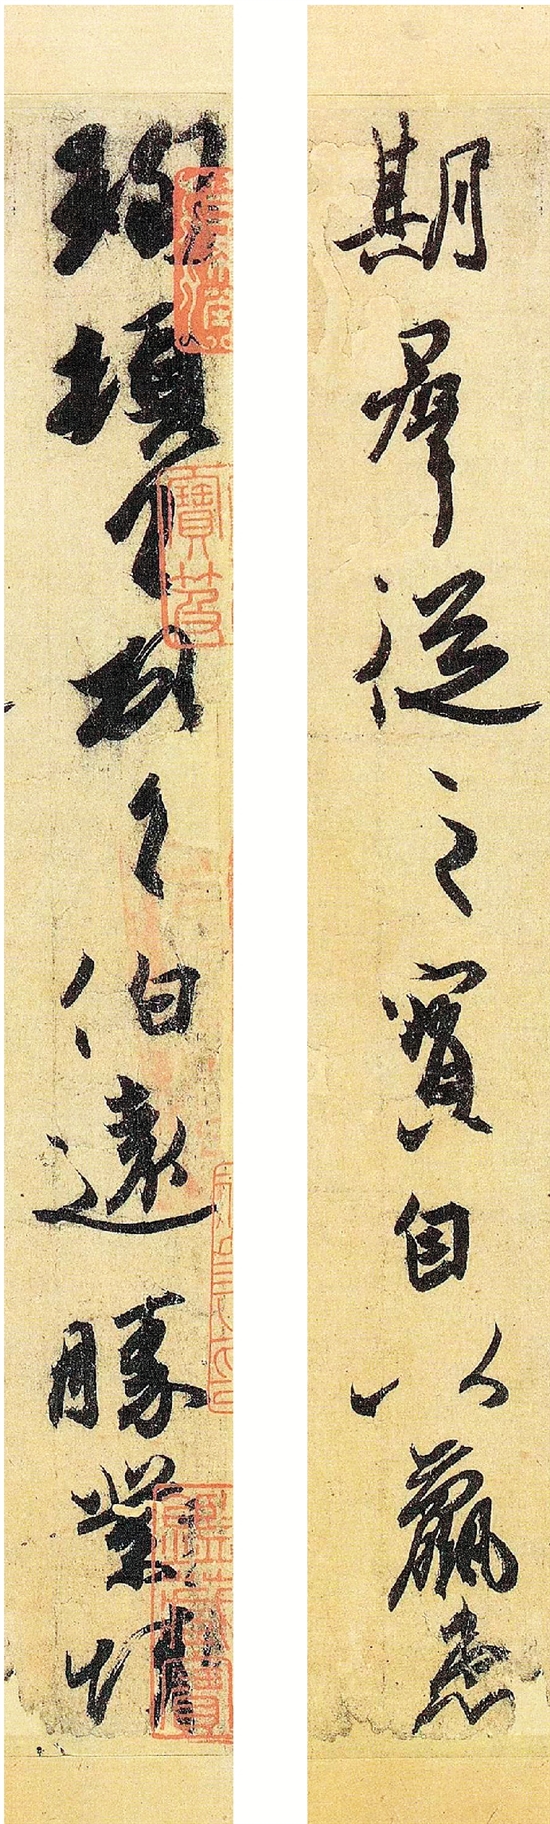 珣頓首頓首伯遠勝業情
期羣從之寶自以羸患
寶笈